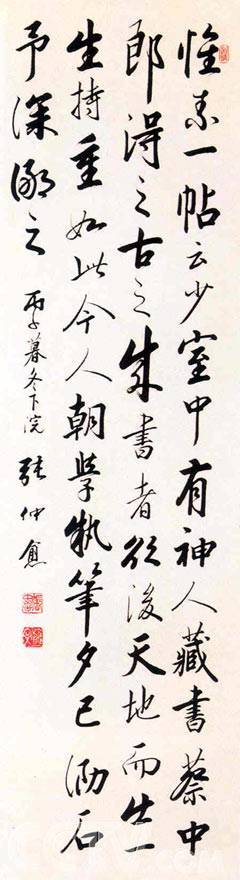 惟素一帖云少室中有神人藏書蔡中
郎得之古之成書者欲後天地而出
生持重如此今人朝學執筆夕已勒石
予深鄙之 丙子暮冬下浣 張仲愈